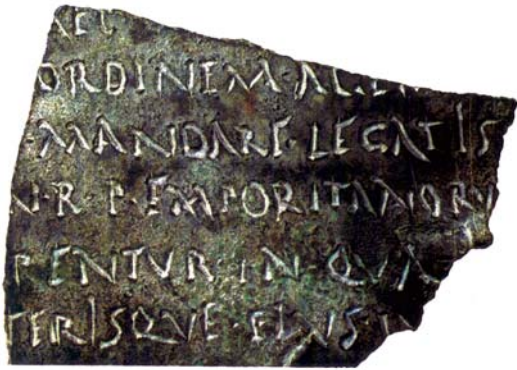 AET
ORDINEM·AC·
·MANDARE·LEGATIS
N·R·P·EMPORITANORV
PENTVR·IN·QVA
TERISQVE·EIVS